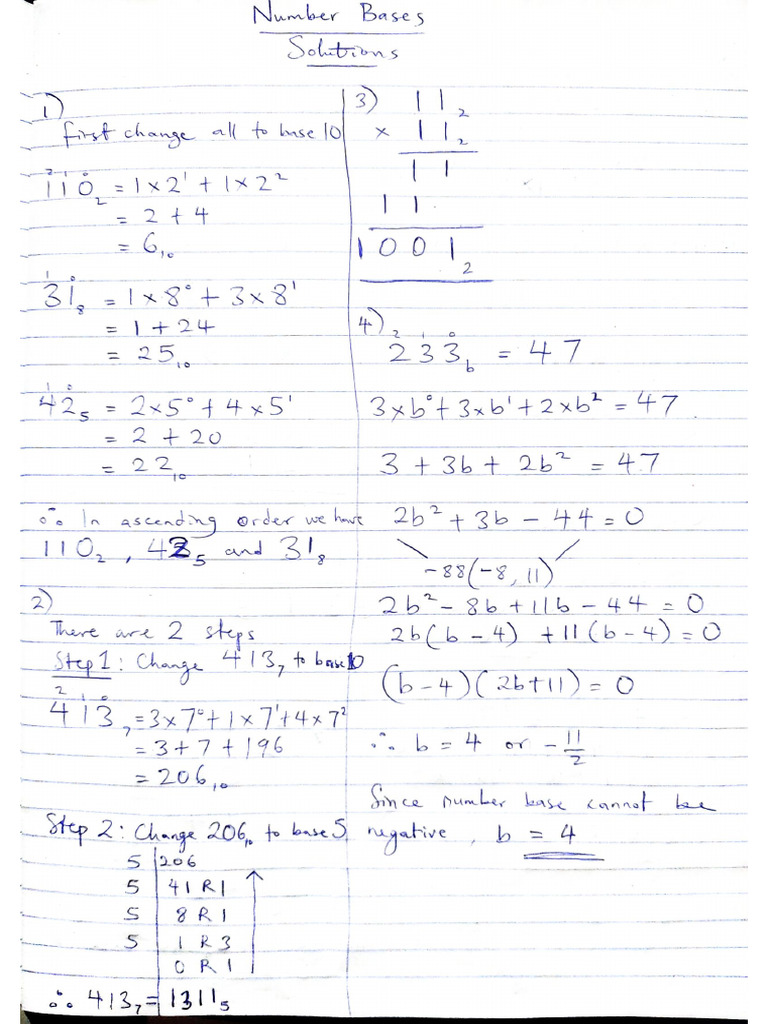 Number Bases
Solutions
1)
first change all to base 10
²1¹1⁰0₂ = 1×2¹ + 1×2²
= 2 + 4
= 6₁₀
¹3⁰1₈ = 1×8⁰ + 3×8¹
= 1 + 24
= 25₁₀
¹4⁰2₅ = 2×5⁰ + 4×5¹
= 2 + 20
= 22₁₀
∴ In ascending order we have
110₂, 42₅ and 31₈
2)
There are 2 steps
Step 1: Change 413₇ to base 10
²4¹1⁰3₇ = 3×7⁰ + 1×7¹ + 4×7²
= 3 + 7 + 196
= 206₁₀
Step 2: Change 206₁₀ to base 5
5 | 206
5 | 41 R 1
5 | 8 R 1
5 | 1 R 3
0 R 1
∴ 413₇ = 1311₅
3) 11₂
× 11₂
11
11
1001₂
4)
²2¹3⁰3b = 47
3×b⁰ + 3×b¹ + 2×b² = 47
3 + 3b + 2b² = 47
2b² + 3b - 44 = 0
-88(-8, 11)
2b² - 8b + 11b - 44 = 0
2b(b - 4) + 11(b - 4) = 0
(b - 4)(2b + 11) = 0
∴ b = 4 or -11/2
Since number base cannot be
negative, b = 4